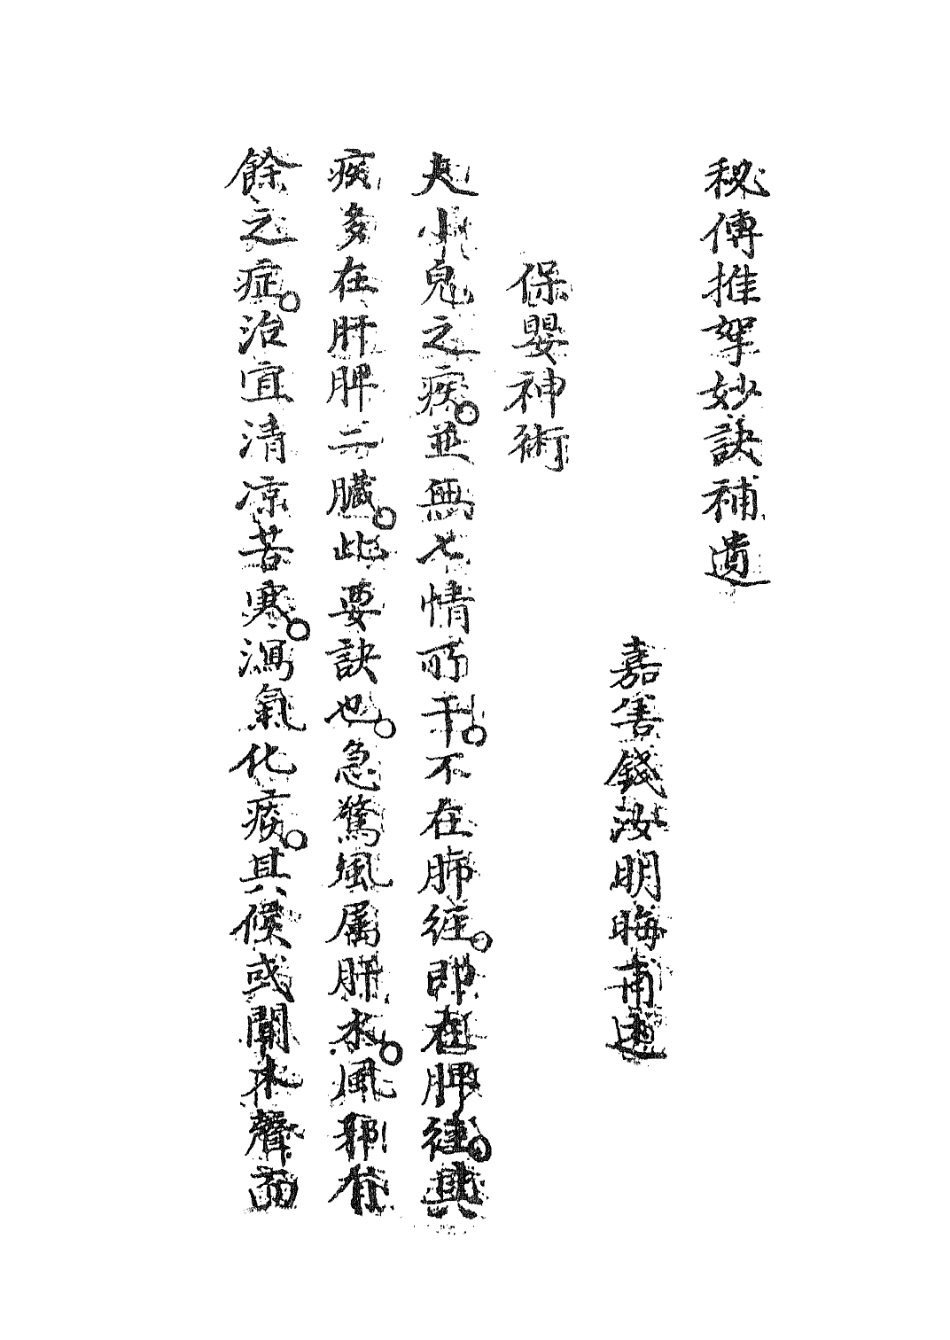 秘傳推拏妙訣補遺
嘉善錢汝明晦甫
保嬰神術
夫小兒之疾。並無七情所干。不在肺經。即在脾經。其
疾多在肝脾二臟。此要訣也。急驚風属肝木。風邪有
餘之症。治宜清凉苦寒。瀉氣化痰。其候或聞木聲而